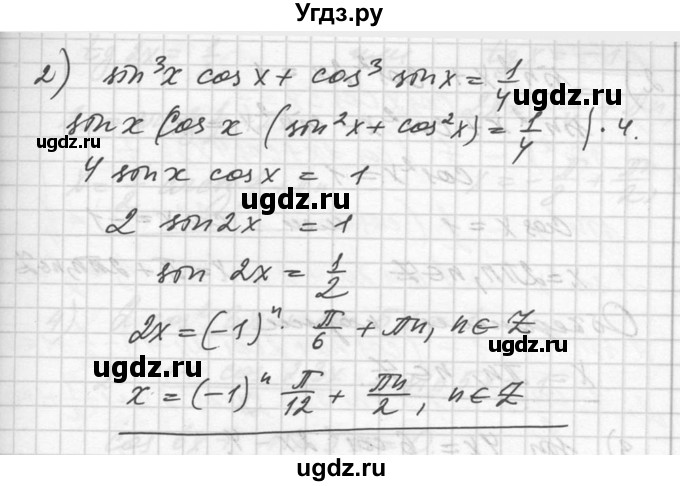 Угдз.ру
2) sin³x cos x + cos³ sin x = 1/4
ugdz.ru
sin x cos x (sin²x + cos²x) = 1/4 | · 4.
ugdz.ru
4 sin x cos x = 1
ugdz.ru
2 sin 2x = 1
sin 2x = 1/2
ugdz.ru
2x = (-1)ⁿ · π/6 + πn, n ∈ Z
ugdz.ru
ugdz.ru
x = (-1)ⁿ π/12 + πn/2, n ∈ Z
ugdz.ru
ugdz.ru